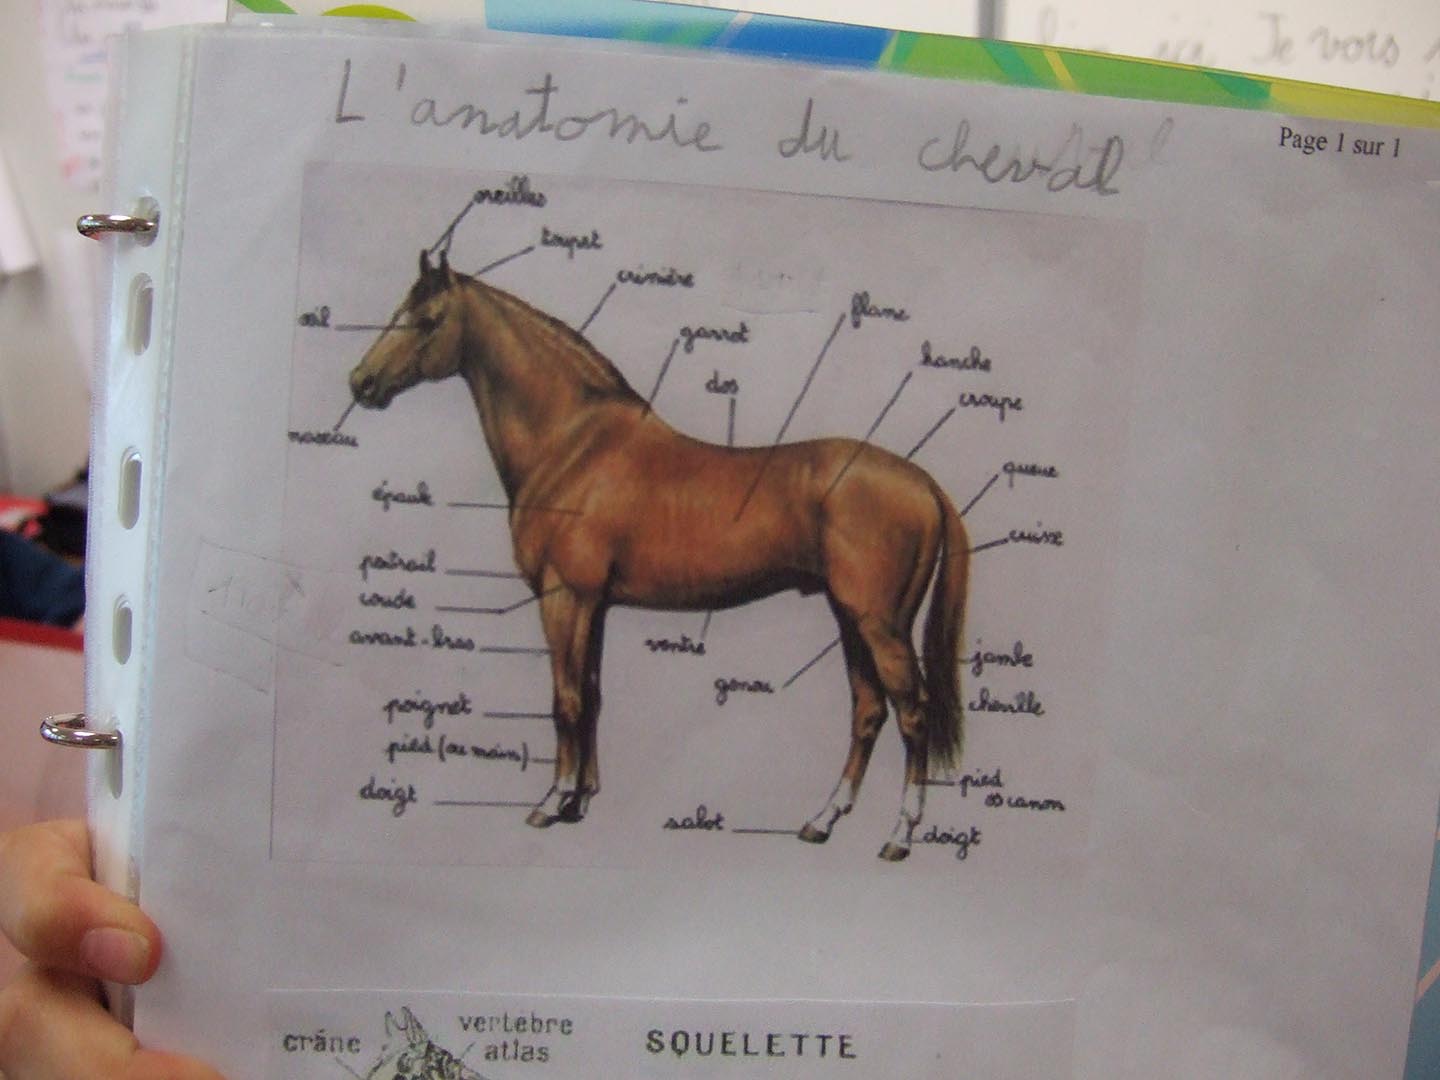 Je vois
L'anatomie du cheval
Page 1 sur 1
oreilles
toupet
crinière
œil
flanc
garrot
hanche
dos
croupe
naseau
queue
épaule
cuisse
poitrail
coude
avant-bras
ventre
jambe
genou
poignet
cheville
pied (ou main)
pied
os canon
doigt
sabot
doigt
crâne
vertèbre
atlas
SQUELETTE